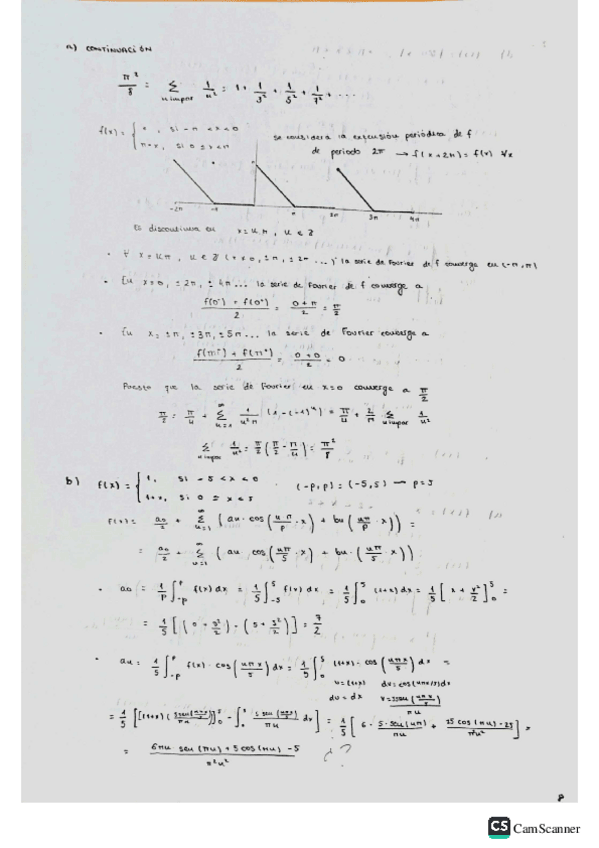 a) CONTINUACIÓN
π²/8 = Σ n impar 1/n² = 1 + 1/3² + 1/5² + 1/7² + ...
f(x) = { 0, si -π < x < 0
π-x, si 0 ≤ x < π
se considera la extensión periódica de f
de periodo 2π → f(x+2π) = f(x) ∀x
-2π -π π 2π 3π 4π
Es discontinua en x = kπ, k ∈ Z
• ∀ x = kπ, k ∈ Z (x ≠ 0, ±π, ±2π ...) la serie de Fourier de f converge en (-π, π)
• En x=0, ±2π, ±4π... la serie de Fourier de f converge a
f(0⁻) + f(0⁺) / 2 = 0+π / 2 = π/2
• En x = ±π, ±3π, ±5π... la serie de Fourier converge a
f(π⁻) + f(π⁺) / 2 = 0+0 / 2 = 0
Puesto que la serie de Fourier en x=0 converge a π/2
π/2 = π/4 + Σ n=1 ∞ 1/n²π (1-(-1)ⁿ) = π/4 + 2/π Σ n impar 1/n²
Σ n impar 1/n² = π/2 (π/2 - π/4) = π²/8
b) f(x) = { 1, si -5 < x < 0
1+x, si 0 ≤ x < 5
(-p,p) = (-5,5) → p=5
f(x) = a₀/2 + Σ n=1 ∞ (an·cos(nπ/p · x) + bn(nπ/p · x)) =
= a₀/2 + Σ n=1 ∞ (an cos(nπ/5 · x) + bn·(nπ/5 · x))
• a₀ = 1/p ∫-p p f(x) dx = 1/5 ∫-5 5 f(x) dx = 1/5 ∫0 5 (1+x) dx = 1/5 [x + x²/2]0 5 =
= 1/5 [(0 + 0²/2) - (5 + 5²/2)] = 7/2
• an = 1/5 ∫-p p f(x)·cos(nπx/5) dx = 1/5 ∫0 5 (1+x)·cos(nπx/5) dx =
u=(1+x) dv=cos(nπx/5)dx
du=dx
= 1/5 [[(1+x)(5sen(nπx/5)/πn)]0 5 - ∫0 5 5sen(nπx/5)/πn dx] = 1/5 [6·5·sen(nπ)/πn + 25cos(πn)-25/π²n²] =
= 6πn sen(πn) + 5cos(πn) - 5 / π²n² ¿?
8
CS CamScanner